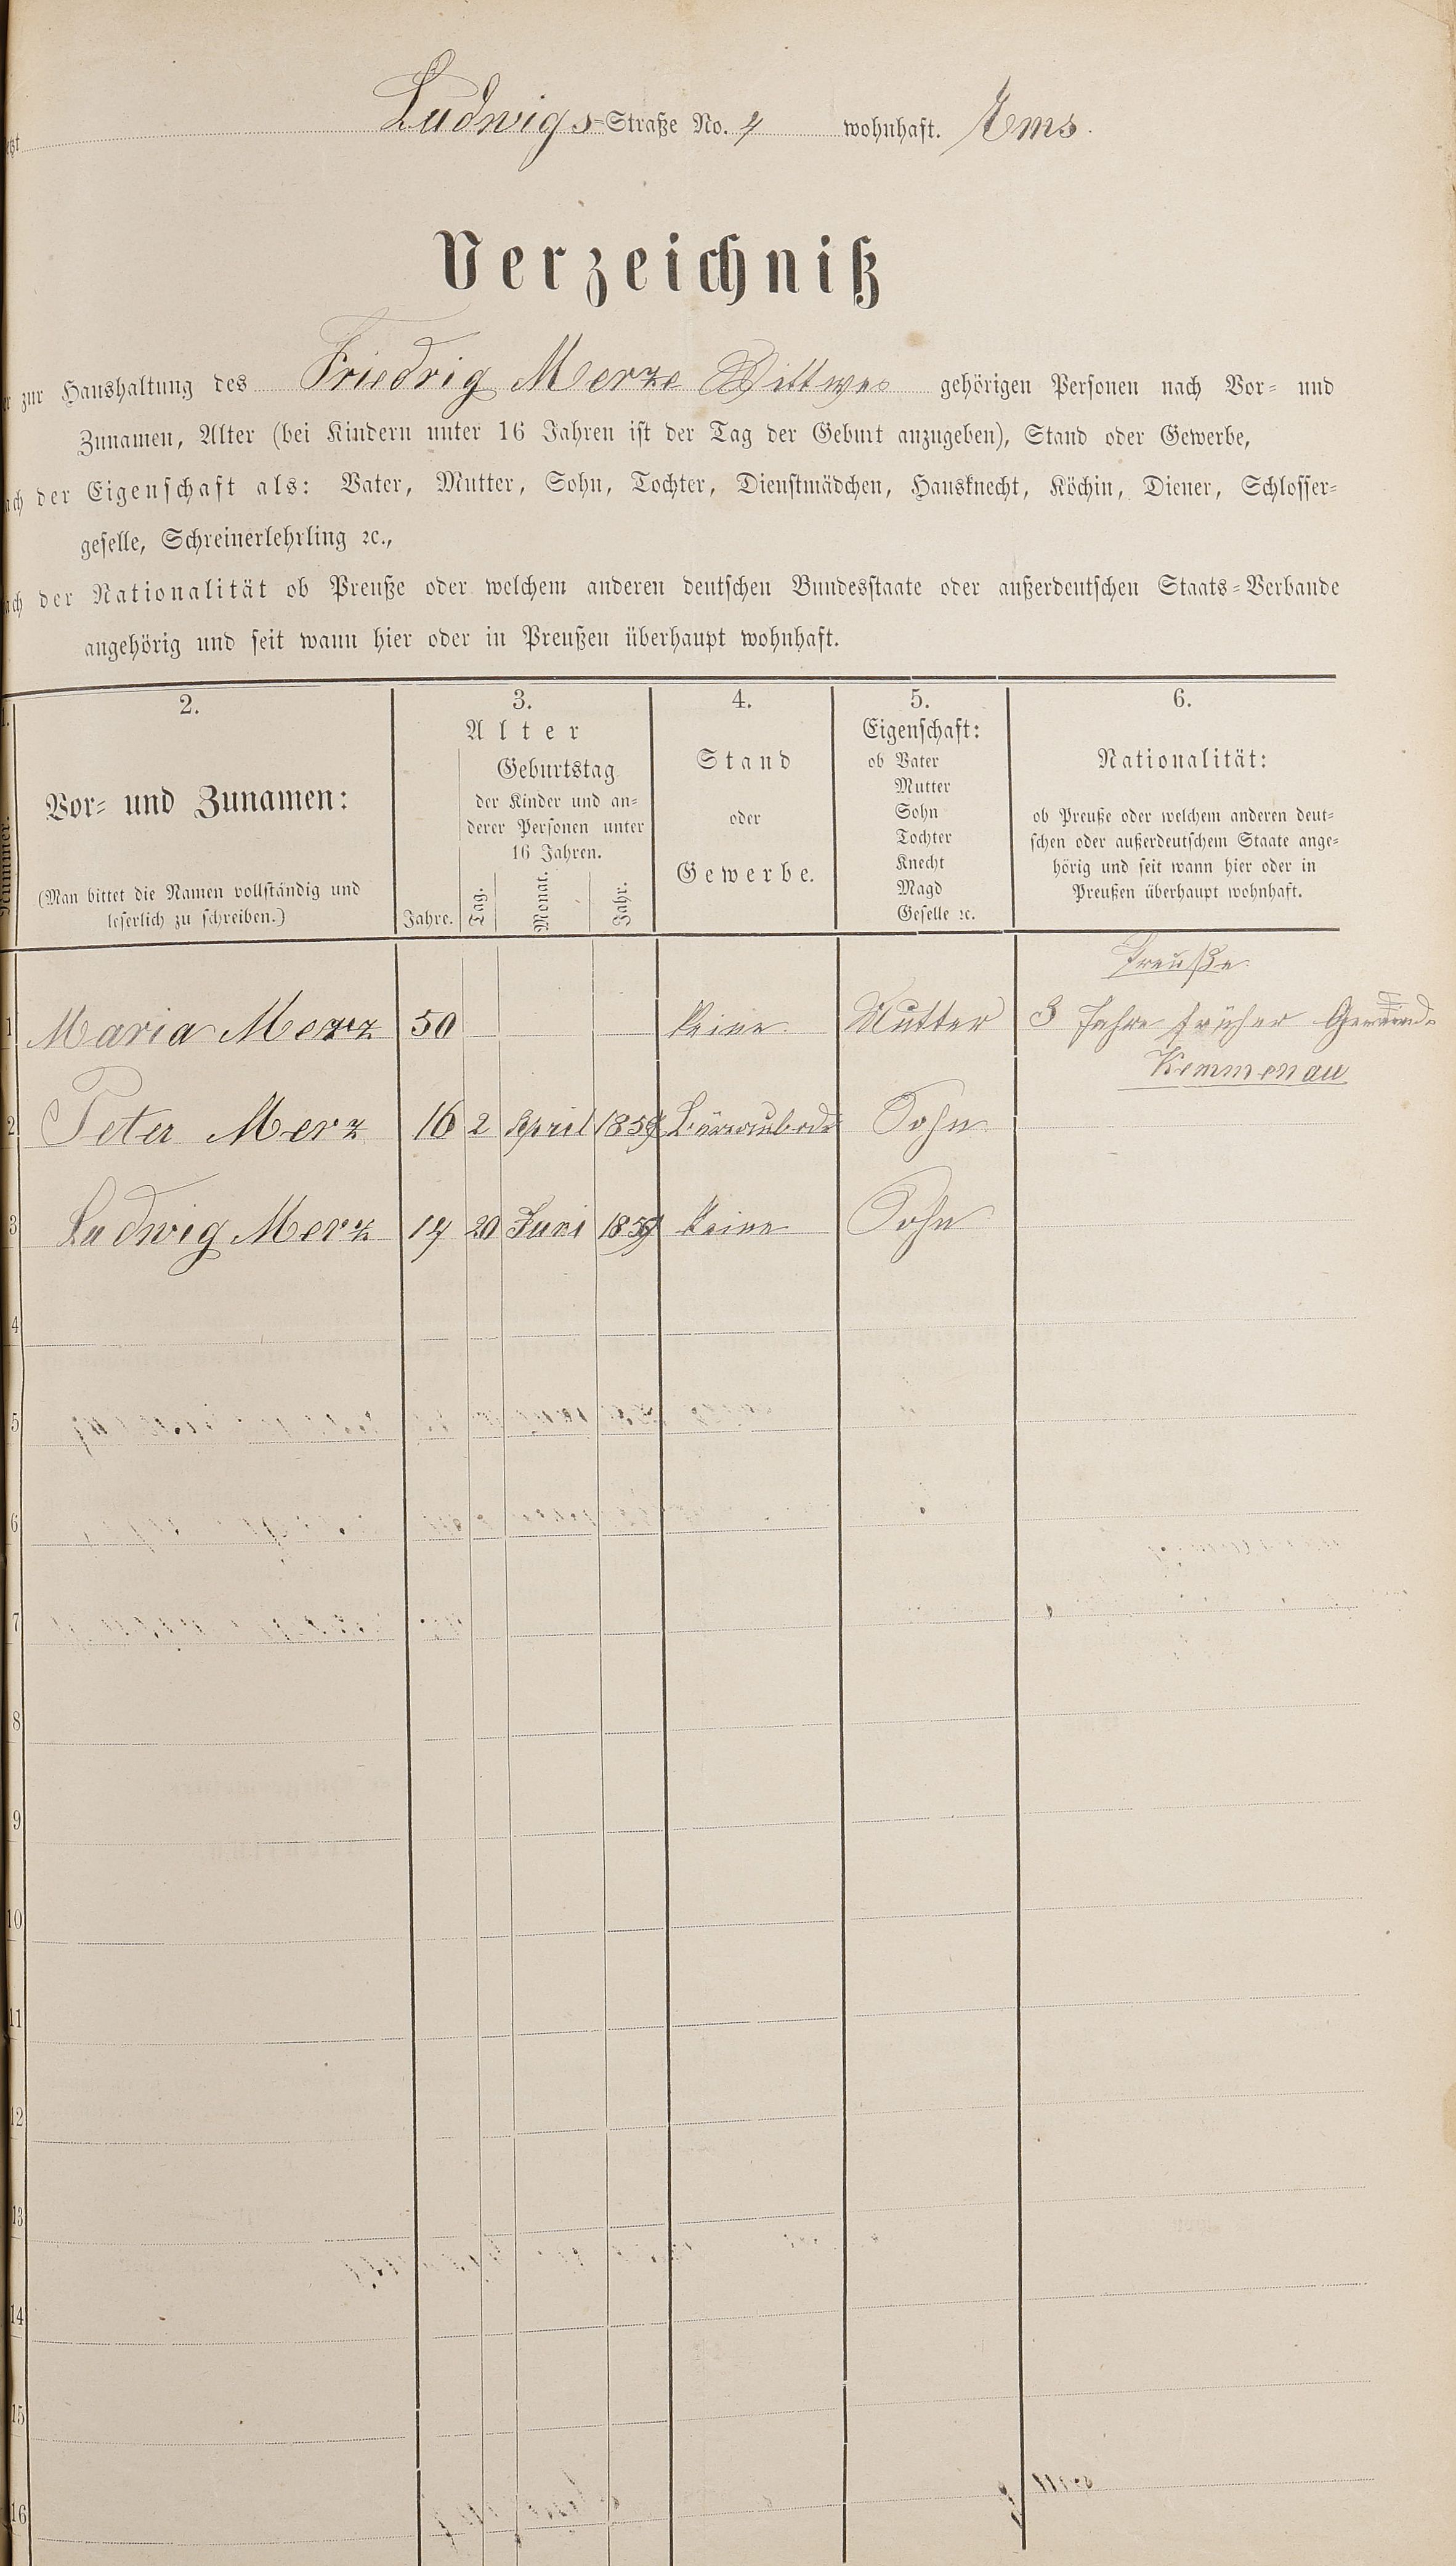 Ludwigs-Straße No. 4 wohnhaft. Ems.
Verzeichniß
zur Haushaltung des Friedrig Merze Wittwes gehörigen Personen nach Vor- und
Zunamen, Alter (bei Kindern unter 16 Jahren ist der Tag der Geburt anzugeben), Stand oder Gewerbe,
der Eigenschaft als: Vater, Mutter, Sohn, Tochter, Dienstmädchen, Hausknecht, Köchin, Diener, Schlosser-
geselle, Schreinerlehrling ꝛc.,
der Nationalität ob Preuße oder welchem anderen deutschen Bundesstaate oder außerdeutschen Staats-Verbande
angehörig und seit wann hier oder in Preußen überhaupt wohnhaft.
Nummer.
2.
Vor- und Zunamen:
(Man bittet die Namen vollständig und
leserlich zu schreiben.)
3.
Alter
Jahre.
Geburtstag
der Kinder und an-
derer Personen unter
16 Jahren.
Tag. Monat. Jahr.
4.
Stand
oder
Gewerbe.
5.
Eigenschaft:
ob Vater
Mutter
Sohn
Tochter
Knecht
Magd
Geselle ꝛc.
6.
Nationalität:
ob Preuße oder welchem anderen deut-
schen oder außerdeutschem Staate ange-
hörig und seit wann hier oder in
Preußen überhaupt wohnhaft.
Preuße
1 Maria Merz 50 keine Mutter 3 Jahre früher Gemeinde
Kemmenau
2 Peter Merz 16 2 April Sohn
3 Ludwig Merz 14 20 Juni keine Sohn
4
5
6
7
8
9
10
11
12
13
14
15
16